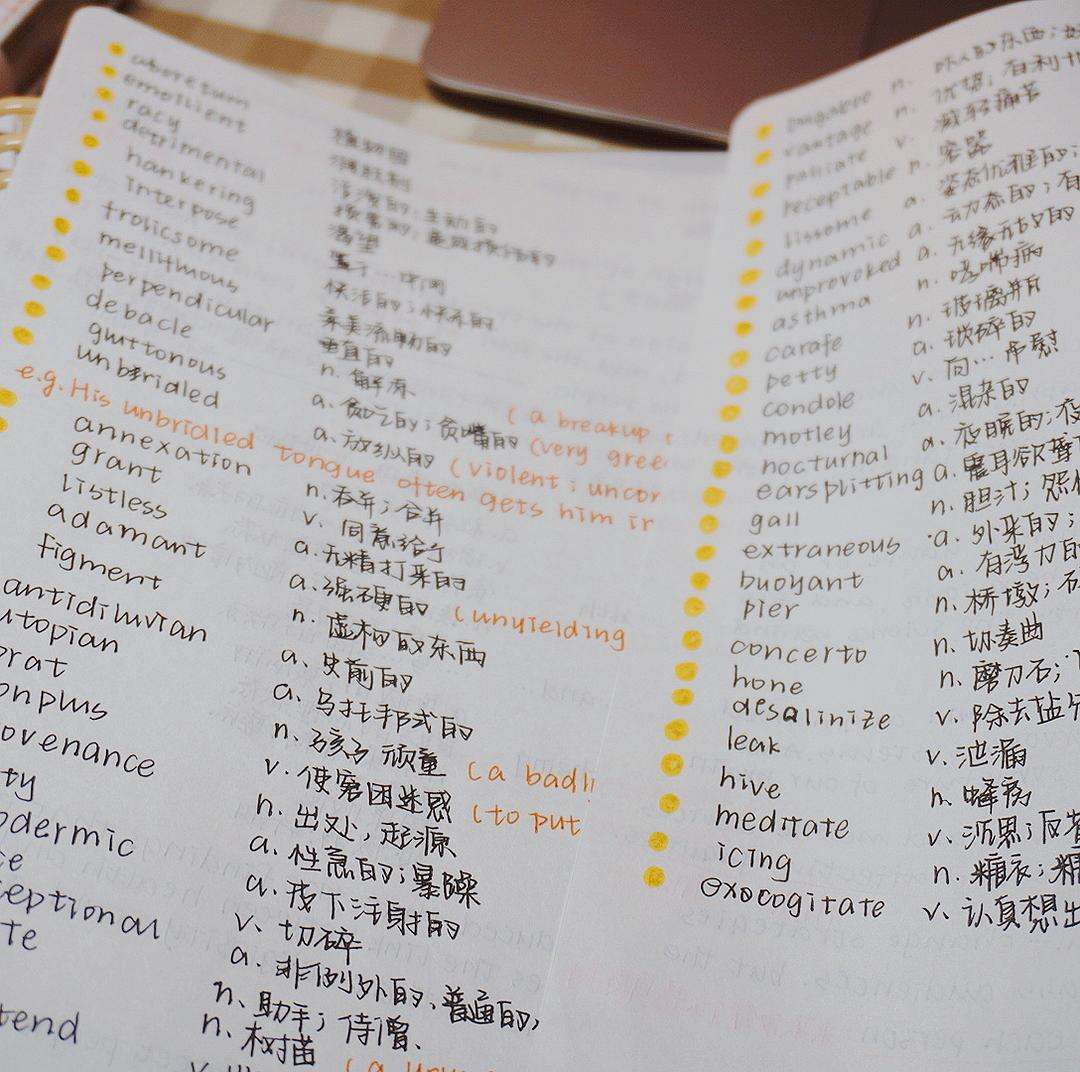 emollient
racy
detrimental
hankering 渴望
interpose
frolicsome 快活的;快乐的
mellifluous
perpendicular 垂直的
debacle n. 解冻 (a breakup
gluttonous a. 贪吃的;贪嘴的 (very gree
unbridled a. 放纵的 (violent; uncor
e.g. His unbridled tongue often gets him ir
annexation n. 吞并;合并
grant v. 同意给予
listless a. 无精打采的
adamant a. 强硬的 (unyielding
figment n. 虚构的东西
antidiluvian a. 史前的
utopian a. 乌托邦式的
brat n. 孩子 顽童 (a badl
onplus v. 使窘困迷惑 (to put
ovenance n. 出处, 起源
ty a. 性急的;暴躁
odermic a. 皮下注射的
e v. 切碎
ceptional a. 非例外的、普通的,
te n. 助手; 侍僧、
n. 树苗
tend
vantage n.
palliate v. 减轻痛苦
receptable n. 容器
lissome a. 姿态优雅的;
dynamic a. 动力态的;有
unprovoked a. 无缘无故的
asthma n. 哮喘病
carafe n. 玻璃瓶
petty a. 琐碎的
condole v. 向…吊慰
motley a. 混杂的
nocturnal a. 夜晚的;夜
earsplitting a. 震耳欲聋
gall n. 胆汁;
extraneous a. 外来的;
buoyant a. 有浮力的
pier n. 桥墩;
concerto n. 协奏曲
hone n. 磨刀石;
desalinize v. 除去盐分
leak v. 泄漏
hive n. 蜂窝
meditate v. 沉思;反
icing n. 糖衣;糖
exocogitate v. 认真想出